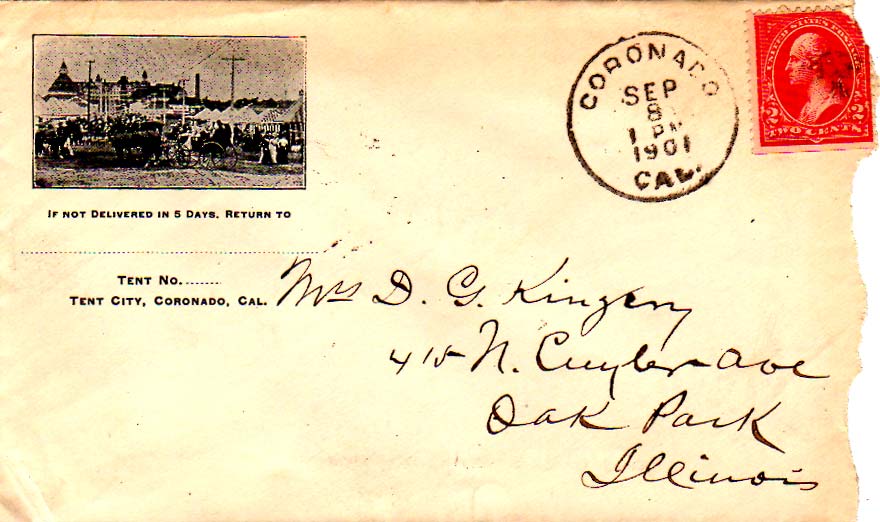 IF NOT DELIVERED IN 5 DAYS, RETURN TO
TENT NO.........
TENT CITY, CORONADO, CAL.
CORONADO
SEP
8
1 PM
1901
CAL.
UNITED STATES POSTAGE
2 2
TWO CENTS
Mrs D. G. Kingery
415 N. Cuyler Ave
Oak Park
Illinois